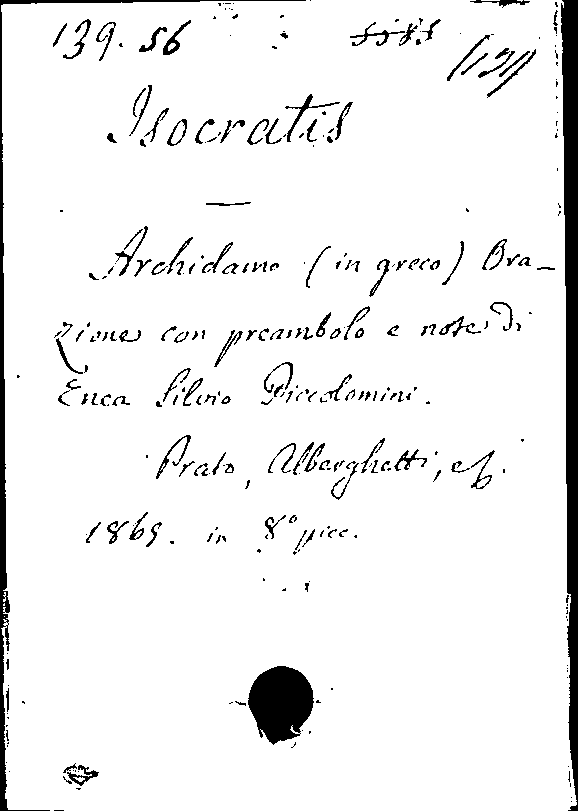 139. 56
Isocratis
Archidamo (in greco) Ora-
zione con preambolo e note di
Enea Silvio Piccolomini.
Prato, Alberghetti, e C.
1869. in 8° picc.